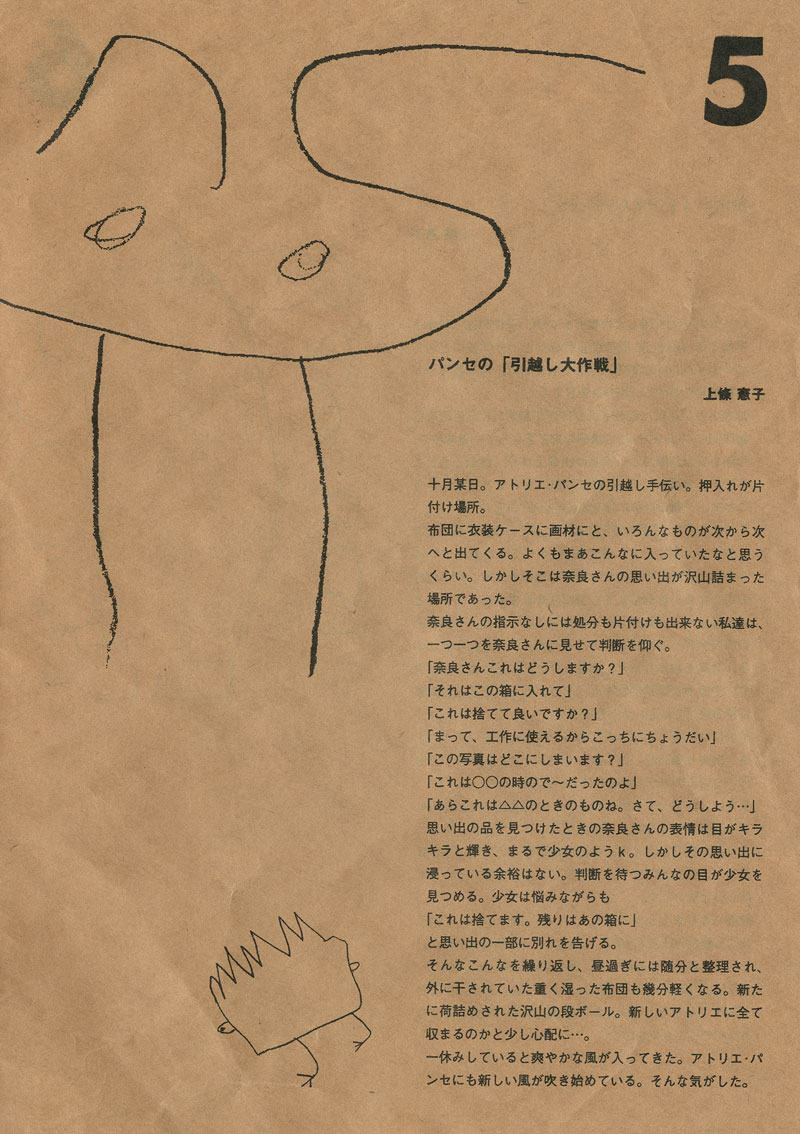 5
パンセの「引越し大作戦」
上條 憲子
十月某日。アトリエ・パンセの引越し手伝い。押入れが片
付け場所。
布団に衣装ケースに画材にと、いろんなものが次から次
へと出てくる。よくもまあこんなに入っていたなと思う
くらい。しかしそこは奈良さんの思い出が沢山詰まった
場所であった。
奈良さんの指示なしには処分も片付けも出来ない私達は、
一つ一つを奈良さんに見せて判断を仰ぐ。
「奈良さんこれはどうしますか？」
「それはこの箱に入れて」
「これは捨てて良いですか？」
「まって、工作に使えるからこっちにちょうだい」
「この写真はどこにしまいます？」
「これは〇〇の時ので〜だったのよ」
「あらこれは△△のときのものね。さて、どうしよう…」
思い出の品を見つけたときの奈良さんの表情は目がキラ
キラと輝き、まるで少女のようｋ。しかしその思い出に
浸っている余裕はない。判断を待つみんなの目が少女を
見つめる。少女は悩みながらも
「これは捨てます。残りはあの箱に」
と思い出の一部に別れを告げる。
そんなこんなを繰り返し、昼過ぎには随分と整理され、
外に干されていた重く湿った布団も幾分軽くなる。新た
に荷詰めされた沢山の段ボール。新しいアトリエに全て
収まるのかと少し心配に…。
一休みしていると爽やかな風が入ってきた。アトリエ・パ
ンセにも新しい風が吹き始めている。そんな気がした。